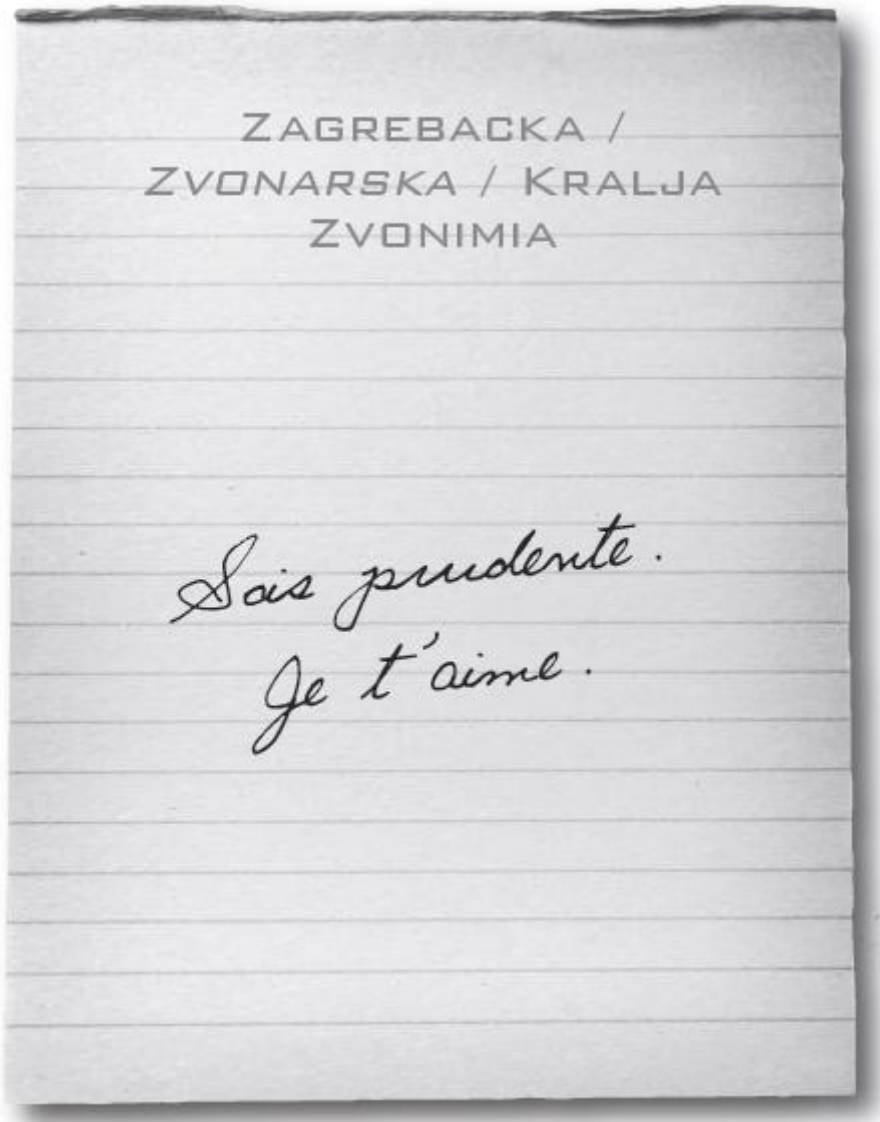 ZAGREBACKA /
ZVONARSKA / KRALJA
ZVONIMIA
Sois prudente.
Je t'aime.